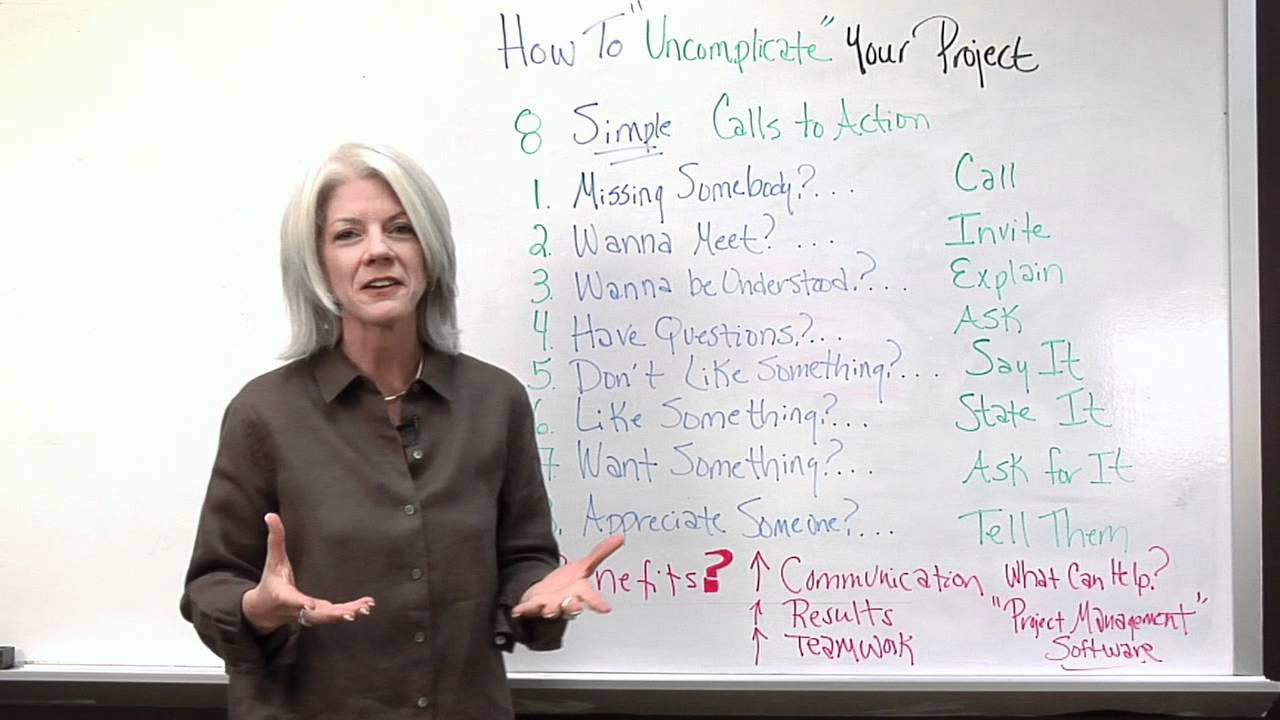 How To "Uncomplicate" Your Project
8 Simple Calls to Action
1. Missing Somebody?... Call
2. Wanna Meet? ... Invite
3. Wanna be Understood?... Explain
4 Have Questions?... ASK
5. Don't Like Something?... Say It
6. Like Something?... State It
7 Want Something?... Ask for It
Appreciate Someone?... Tell Them
nefits? ↑ Communication What Can Help?
↑ Results "Project Management"
↑ Teamwork Software